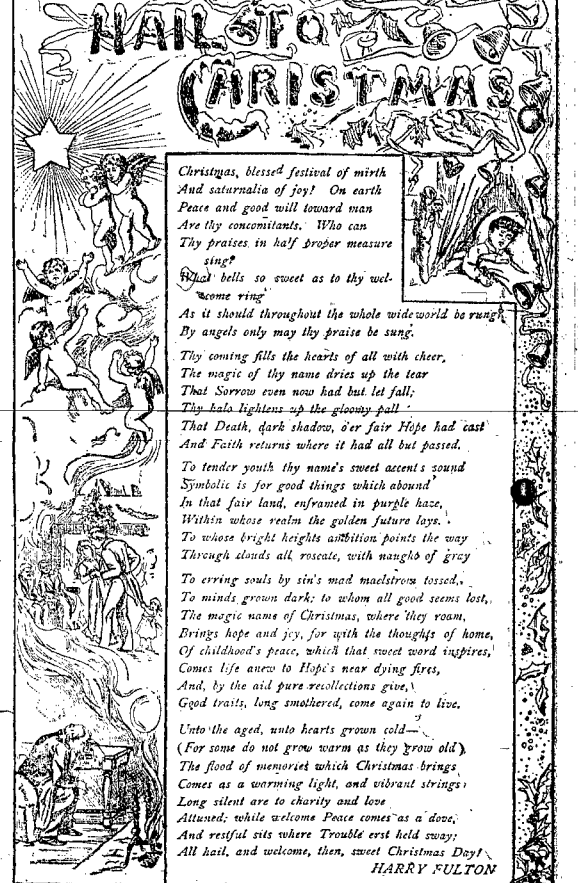 HAIL TO
CHRISTMAS
Christmas, blessed festival of mirth
And saturnalia of joy! On earth
Peace and good will toward man
Are thy concomitants. Who can
Thy praises in half proper measure
sing?
What bells so sweet as to thy wel-
come ring
As it should throughout the whole wide world be rung?
By angels only may thy praise be sung.
Thy coming fills the hearts of all with cheer,
The magic of thy name dries up the tear
That Sorrow even now had but let fall;
Thy halo lightens up the gloomy pall
That Death, dark shadow, o'er fair Hope had cast
And Faith returns where it had all but passed.
To tender youth thy name's sweet accents sound
Symbolic is for good things which abound
In that fair land, enframed in purple haze,
Within whose realm the golden future lays.
To whose bright heights ambition points the way
Through clouds all roseate, with naught of gray
To erring souls by sin's mad maelstrom tossed,
To minds grown dark; to whom all good seems lost,
The magic name of Christmas, where they roam,
Brings hope and joy, for with the thoughts of home,
Of childhood's peace, which that sweet word inspires,
Comes life anew to Hope's near dying fires,
And, by the aid pure recollections give,
Good traits, long smothered, come again to live.
Unto the aged, unto hearts grown cold—
(For some do not grow warm as they grow old),
The flood of memories which Christmas brings
Comes as a warming light, and vibrant strings
Long silent are to charity and love
Attuned; while welcome Peace comes as a dove,
And restful sits where Trouble erst held sway;
All hail, and welcome, then, sweet Christmas Day!
HARRY FULTON